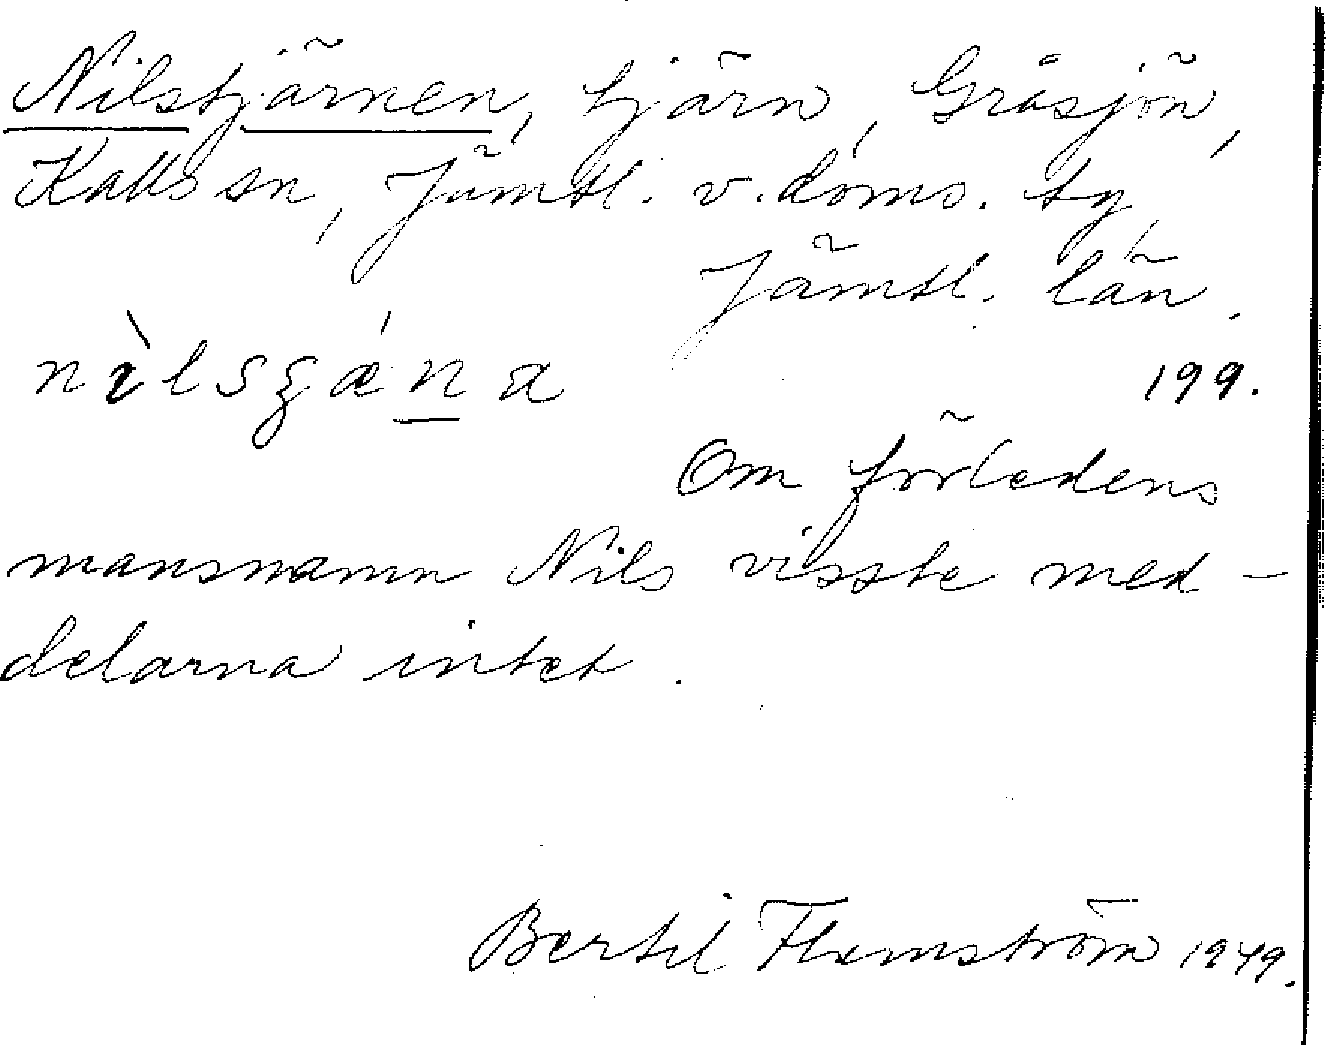 Nilstjärnen, tjärn, Gråsjön,
Kalls sn, Jämtl. v. doms. tg
Jämtl. län.
nìlsʒǽna
199.
Om förledens
mansnamn Nils visste med-
delarna intet.
Bertil Flemström 1949.